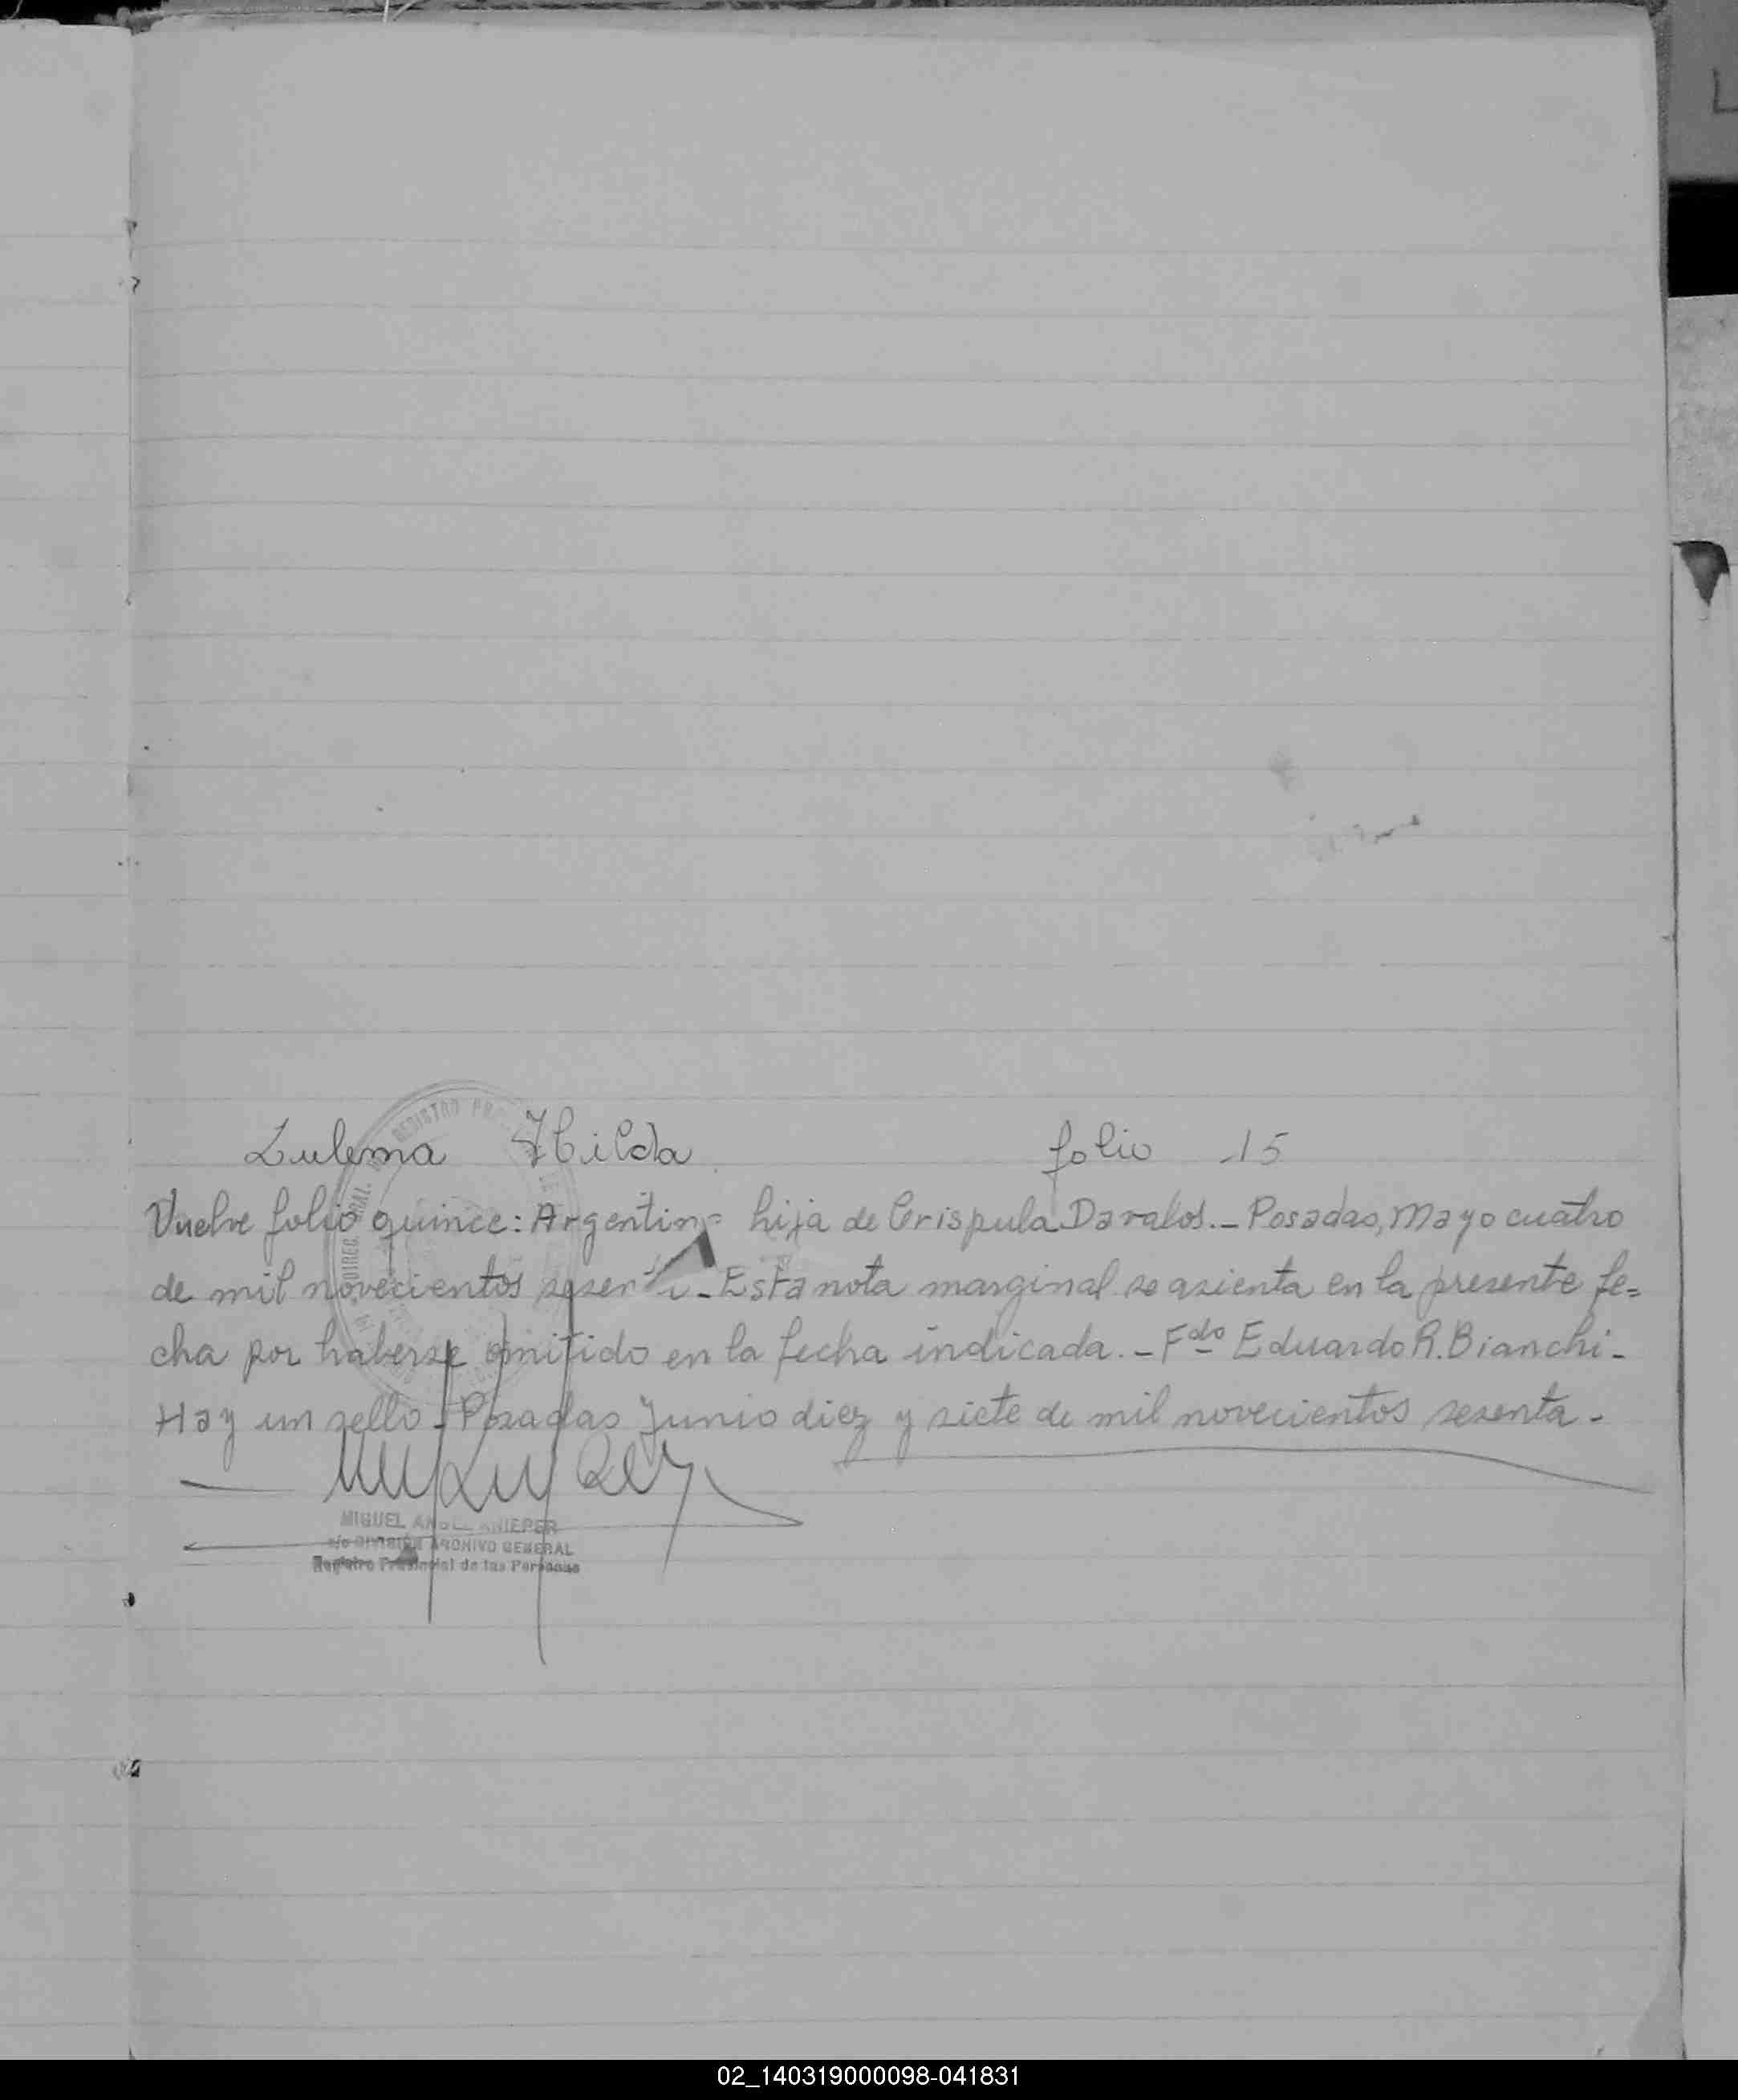 Zulema Hilda folio 15
Vuelve folio quince: Argentina hija de Crispula Davalos.- Posadas, Mayo cuatro
de mil novecientos sesenta.- Esta nota marginal se asienta en la presente fe=
cha por haberse omitido en la fecha indicada.- Fdo Eduardo R. Bianchi-
Hay un sello - Posadas Junio diez y siete de mil novecientos sesenta -
MIGUEL KNIEPER
a/c DIVISIÓN ARCHIVO GENERAL
Registro Provincial de las Personas
02_140319000098-041831